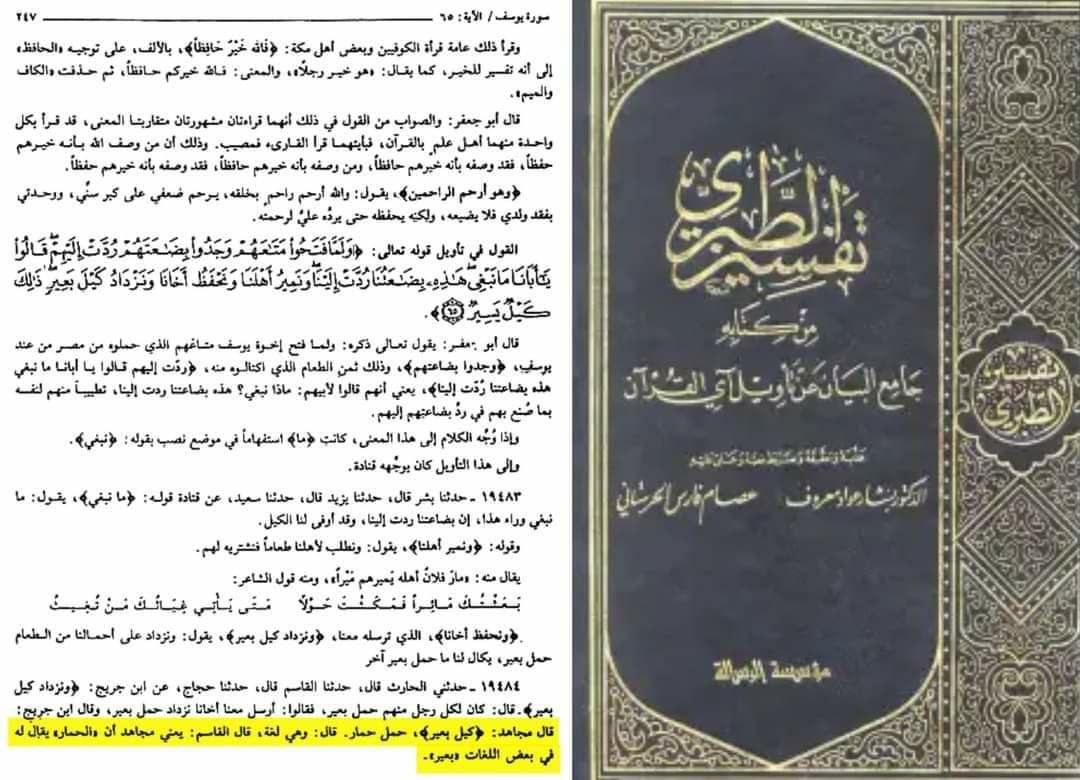 سورة يوسف / الآية: ٦٥
٢٤٧
وقرأ ذلك عامة قرأة الكوفيين وبعض أهل مكة: ﴿فَالله خَيْرٌ حَافِظاً﴾، بالألف، على توجيه «الحافظ»
إلى أنه تفسير للخير، كما يقال: «هو خير رجلاً»، والمعنى: فالله خيركم حافظاً، ثم حذفت «الكاف
والميم».
قال أبو جعفر: والصواب من القول في ذلك أنهما قراءتان مشهورتان متقاربتا المعنى، قد قرأ بكل
واحدة منهما أهل علم بالقرآن، فبأيتهما قرأ القارىء فمصيب. وذلك أن من وصف الله بأنه خيرهم
حفظاً، فقد وصفه بأنه خيرهم حافظاً، ومن وصفه بأنه خيرهم حافظاً، فقد وصفه بأنه خيرهم حفظاً.
﴿وهو أرحم الراحمين﴾، يقول: والله أرحم راحمٍ بخلقه، يرحم ضعفي على كبر سنّي، ووحدتي
بفقد ولدي فلا يضيعه، ولكنه يحفظه حتى يردَّه عليَّ لرحمته.
القول في تأويل قوله تعالى: ﴿وَلَمَّا فَتَحُوا۟ مَتَـٰعَهُمْ وَجَدُوا۟ بِضَـٰعَتَهُمْ رُدَّتْ إِلَيْهِمْ ۖ قَالُوا۟
يَـٰٓأَبَانَا مَا نَبْغِى ۖ هَـٰذِهِۦ بِضَـٰعَتُنَا رُدَّتْ إِلَيْنَا ۖ وَنَمِيرُ أَهْلَنَا وَنَحْفَظُ أَخَانَا وَنَزْدَادُ كَيْلَ بَعِيرٍ ۖ ذَٰلِكَ
كَيْلٌ يَسِيرٌ ﴿٦٥﴾﴾.
قال أبو جعفر: يقول تعالى ذكره: ولما فتح إخوة يوسف متاعهم الذي حملوه من مصر من عند
يوسف، ﴿وجدوا بضاعتهم﴾، وذلك ثمن الطعام الذي اكتالوه منه، ﴿ردّت إليهم قالوا يا أبانا ما نبغي
هذه بضاعتنا رُدّت إلينا﴾، يعني أنهم قالوا لأبيهم: ماذا نبغي؟ هذه بضاعتنا ردت إلينا، تطييباً منهم لنفسه
بما صُنع بهم في ردِّ بضاعتِهم إليهم.
وإذا وُجِّه الكلام إلى هذا المعنى، كانتِ ﴿ما﴾ استفهاماً في موضع نصب بقوله: ﴿نبغي﴾.
وإلى هذا التأويل كان يوجِّهه قتادة.
١٩٤٨٣ ـ حدثنا بشر قال، حدثنا يزيد قال، حدثنا سعيد، عن قتادة قوله: ﴿ما نبغي﴾، يقول: ما
نبغي وراء هذا، إن بضاعتنا ردت إلينا، وقد أوفى لنا الكيل.
وقوله: ﴿ونمير أهلنا﴾، يقول: ونطلب لأهلنا طعاماً فنشتريه لهم.
يقال منه: «مارَ فلانٌ أهله يَميرهم مَيْراً»، ومنه قول الشاعر:
بَعَثْتُكَ مَائِراً فَمَكَثْتَ حَوْلًا مَتَى يَأْتِي غِيَاثُكَ مَنْ تُغِيثُ
﴿ونحفظ أخانا﴾، الذي ترسله معنا، ﴿ونزداد كيل بعير﴾، يقول: ونزداد على أحمالنا من الطعام
حمل بعير، يكال لنا ما حمل بعير آخر
١٩٤٨٤ ـ حدثني الحارث قال، حدثنا القاسم قال، حدثنا حجاج، عن ابن جريج: ﴿ونزداد كيل
بعير﴾ قال: كان لكل رجل منهم حمل بعير، فقالوا: أرسل معنا أخانا نزداد حمل بعير، وقال ابن جريج:
قال مجاهد: ﴿كيل بعير﴾، حمل حمار. قال: وهي لغة، قال القاسم: يعني مجاهد أن «الحمار» يقال له
في بعض اللغات «بعير».
تفسير الطبري
من كتابه
جامع البيان عن تأويل آي القرآن
الدكتور بشار عواد معروف
عصام فارس الحرستاني
مؤسسة الرسالة
تفسير
الطبري